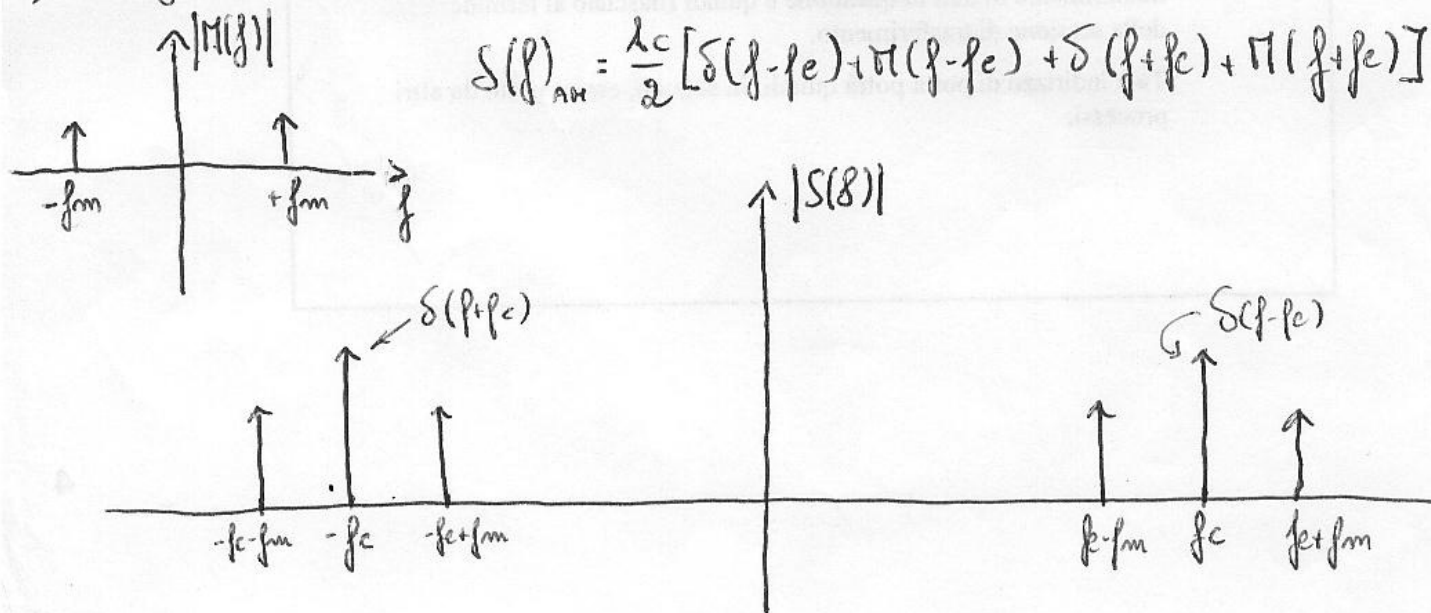 |M(f)|
S(f)AM = Ac/2 [δ(f-fc)+M(f-fc)+δ(f+fc)+M(f+fc)]
-fm +fm f
|S(f)|
δ(f+fc) δ(f-fc)
-fc-fm -fc -fc+fm fc-fm fc fc+fm